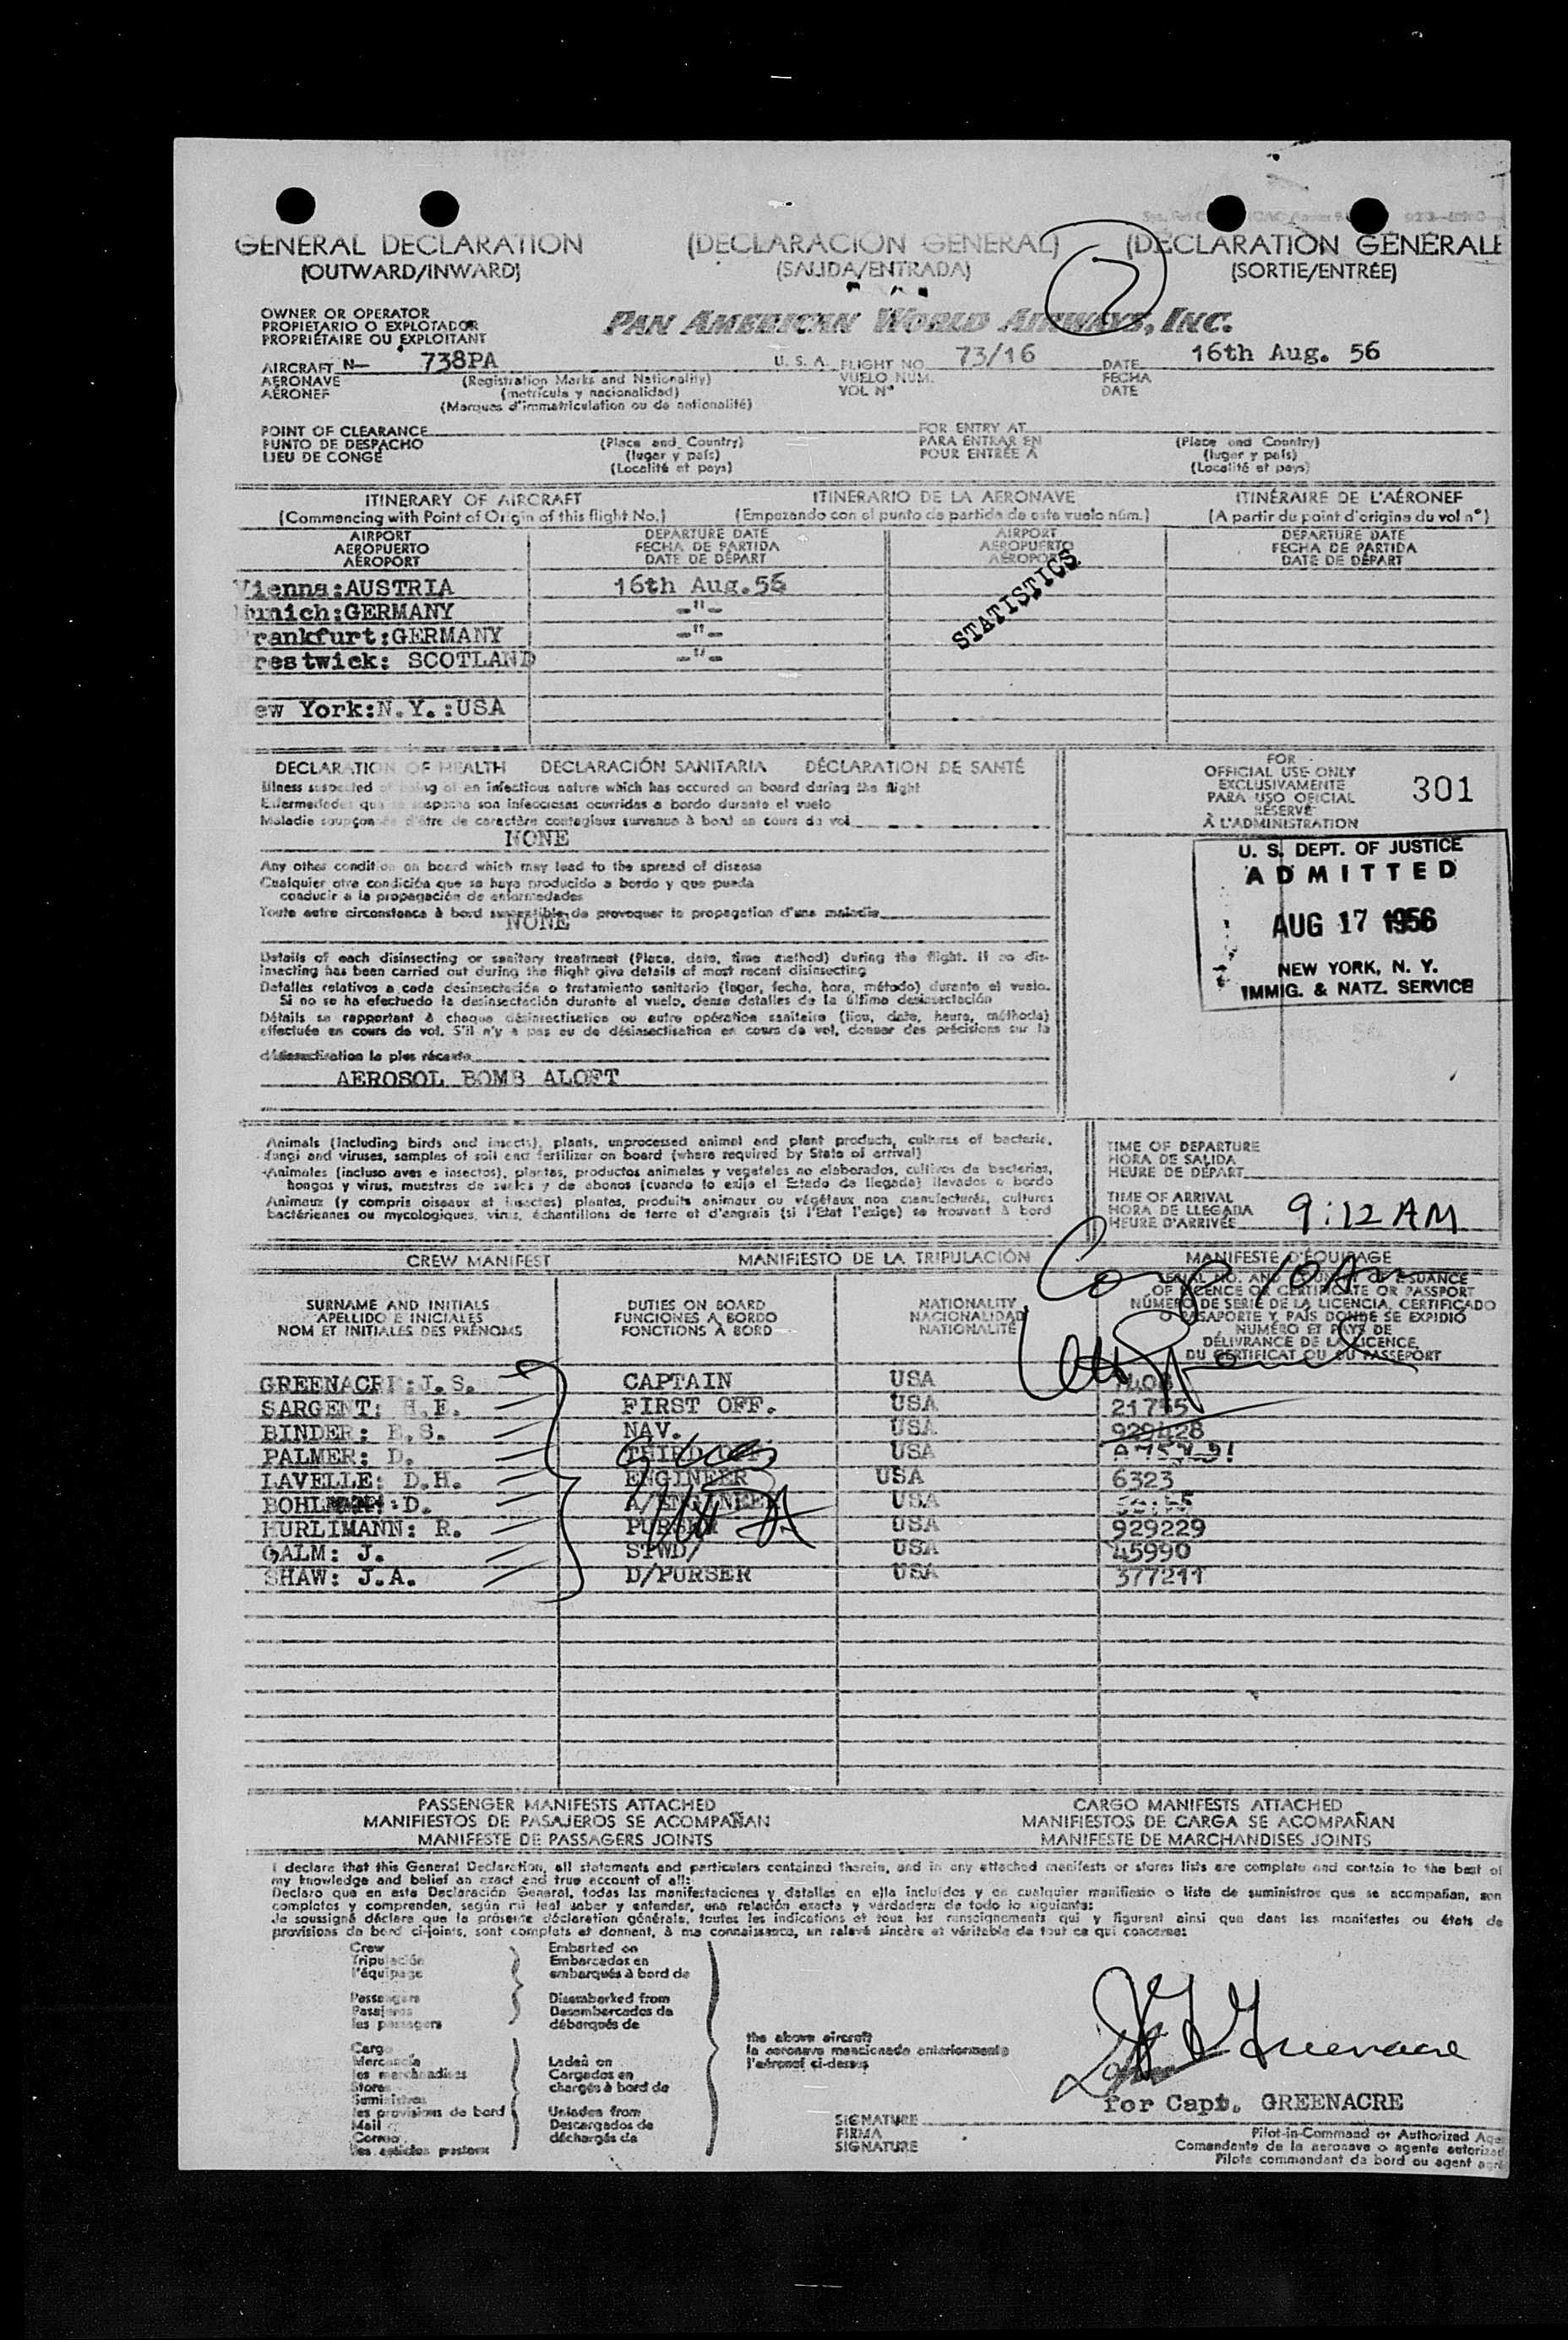 GENERAL DECLARATION (DECLARACIÓN GENERAL) (DÉCLARATION GÉNÉRALE
(OUTWARD/INWARD) (SALIDA/ENTRADA) (SORTIE/ENTRÉE)
OWNER OR OPERATOR
PROPIETARIO O EXPLOTADOR
PROPRIÉTAIRE OU EXPLOITANT
PAN AMERICAN WORLD AIRWAYS, INC.
AIRCRAFT N— 738PA U. S. A. FLIGHT NO. 73/16 DATE 16th Aug. 56
AERONAVE (Registration Marks and Nationality) VUELO NUM. FECHA
AÉRONEF (matrícula y nacionalidad) VOL N° DATE
(Marques d'immatriculation ou de nationalité)
POINT OF CLEARANCE FOR ENTRY AT
PUNTO DE DESPACHO (Place and Country) PARA ENTRAR EN (Place and Country)
LIEU DE CONGÉ (lugar y país) POUR ENTRÉE A (lugar y país)
(Localité et pays) (Localité et pays)
ITINERARY OF AIRCRAFT ITINERARIO DE LA AERONAVE ITINÉRAIRE DE L'AÉRONEF
(Commencing with Point of Origin of this flight No.) (Empezando con el punto de partida de este vuelo núm.) (A partir du point d'origine du vol n°)
AIRPORT DEPARTURE DATE AIRPORT DEPARTURE DATE
AEROPUERTO FECHA DE PARTIDA AEROPUERTO FECHA DE PARTIDA
AÉROPORT DATE DE DÉPART AÉROPORT DATE DE DÉPART
Vienna:AUSTRIA 16th Aug.56
Munich:GERMANY -"-
rankfurt:GERMANY -"-
restwick: SCOTLAND -"-
STATISTICS
ew York:N.Y.:USA
DECLARATION OF HEALTH DECLARACIÓN SANITARIA DÉCLARATION DE SANTÉ
Illness suspected of being of an infectious nature which has occured on board during the flight
Enfermedades que se sospecha son infecciosas ocurridas a bordo durante el vuelo
Maladie soupçonnée d'être de caractère contagieux survenue à bord en cours de vol
NONE
Any other condition on board which may lead to the spread of disease
Cualquier otra condición que se haya producido a bordo y que pueda
conducir a la propagación de enfermedades
Toute autre circonstance à bord susceptible de provoquer la propagation d'une maladie
NONE
Details of each disinsecting or sanitary treatment (Place, date, time method) during the flight. If no dis-
insecting has been carried out during the flight give details of most recent disinsecting
Detalles relativos a cada desinsectación o tratamiento sanitario (lugar, fecha, hora, método) durante el vuelo.
Si no se ha efectuado la desinsectación durante el vuelo, dense detalles de la última desinsectación
Détails se rapportant à chaque désinsectisation ou autre opération sanitaire (lieu, date, heure, méthode)
effectuée en cours de vol. S'il n'y a pas eu de désinsectisation en cours de vol, donner des précisions sur la
désinsectisation la plus récente
AEROSOL BOMB ALOFT
FOR
OFFICIAL USE ONLY
EXCLUSIVAMENTE
PARA USO OFICIAL
RÉSERVÉ
À L'ADMINISTRATION
301
U. S. DEPT. OF JUSTICE
ADMITTED
AUG 17 1956
NEW YORK, N. Y.
IMMIG. & NATZ. SERVICE
Animals (Including birds and insects), plants, unprocessed animal and plant products, cultures of bacteria,
fungi and viruses, samples of soil and fertilizer on board (where required by State of arrival)
Animales (incluso aves e insectos), plantas, productos animales y vegetales no elaborados, cultivos de bacterias,
hongos y virus, muestras de suelos y de abonos (cuando lo exija el Estado de llegada) llevados a bordo
Animaux (y compris oiseaux et insectes) plantes, produits animaux ou végétaux non manufacturés, cultures
bactériennes ou mycologiques, virus, échantillons de terre et d'engrais (si l'État l'exige) se trouvant à bord
TIME OF DEPARTURE
HORA DE SALIDA
HEURE DE DÉPART
TIME OF ARRIVAL
HORA DE LLEGADA
HEURE D'ARRIVÉE 9:12 AM
CREW MANIFEST MANIFIESTO DE LA TRIPULACIÓN MANIFESTE D'ÉQUIPAGE
SURNAME AND INITIALS
APELLIDO E INICIALES
NOM ET INITIALES DES PRÉNOMS
DUTIES ON BOARD
FUNCIONES A BORDO
FONCTIONS À BORD
NATIONALITY
NACIONALIDAD
NATIONALITÉ
SERIAL NO. AND COUNTRY OF ISSUANCE
OF LICENCE OR CERTIFICATE OR PASSPORT
NÚMERO DE SERIE DE LA LICENCIA, CERTIFICADO
O PASAPORTE Y PAÍS DONDE SE EXPIDIÓ
NUMÉRO ET PAYS DE
DÉLIVRANCE DE LA LICENCE,
DU CERTIFICAT OU DU PASSEPORT
GREENACRE:J.S. CAPTAIN USA
SARGENT: H.E. FIRST OFF. USA
BINDER: E.S. NAV. USA 929428
PALMER: D. THIRD OFF. USA
LAVELLE: D.H. ENGINEER USA 6323
D. A/ENGINEER USA
HURLIMANN: R. PURSER USA 929229
GALM: J. STWD/ USA 45990
SHAW: J.A. D/PURSER USA 377211
PASSENGER MANIFESTS ATTACHED CARGO MANIFESTS ATTACHED
MANIFIESTOS DE PASAJEROS SE ACOMPAÑAN MANIFIESTOS DE CARGA SE ACOMPAÑAN
MANIFESTE DE PASSAGERS JOINTS MANIFESTE DE MARCHANDISES JOINTS
I declare that this General Declaration, all statements and particulars contained therein, and in any attached manifests or stores lists are complete and contain to the best of
my knowledge and belief an exact and true account of all:
Declaro que en esta Declaración General, todas las manifestaciones y detalles en ella incluídos y en cualquier manifiesto o lista de suministros que se acompañan, son
completos y comprenden, según mi leal saber y entender, una relación exacta y verdadera de todo lo siguiente:
Je soussigné déclare que la présente déclaration générale, toutes les indications et tous les renseignements qui y figurent ainsi que dans les manifestes ou états de
provisions de bord ci-joints, sont complets et donnent, à ma connaissance, un relevé sincère et véritable de tout ce qui concerne:
Crew
Tripulación
l'équipage
Passengers
Pasajeros
les passagers
Cargo
Mercancía
les marchandises
Stores
Suministros
les provisions de bord
Mail
Correo
les articles postaux
Embarked on
Embarcados en
embarqués à bord de
Disembarked from
Desembarcados de
débarqués de
Laden on
Cargados en
chargés à bord de
Unladen from
Descargados de
déchargés de
the above aircraft
la aeronave mencionada anteriormente
l'aéronef ci-dessus
for Capt. GREENACRE
SIGNATURE
FIRMA
SIGNATURE
Pilot-in-Command or Authorized Age
Comandante de la aeronave o agente autorizad
Pilote commandant de bord ou agent agré